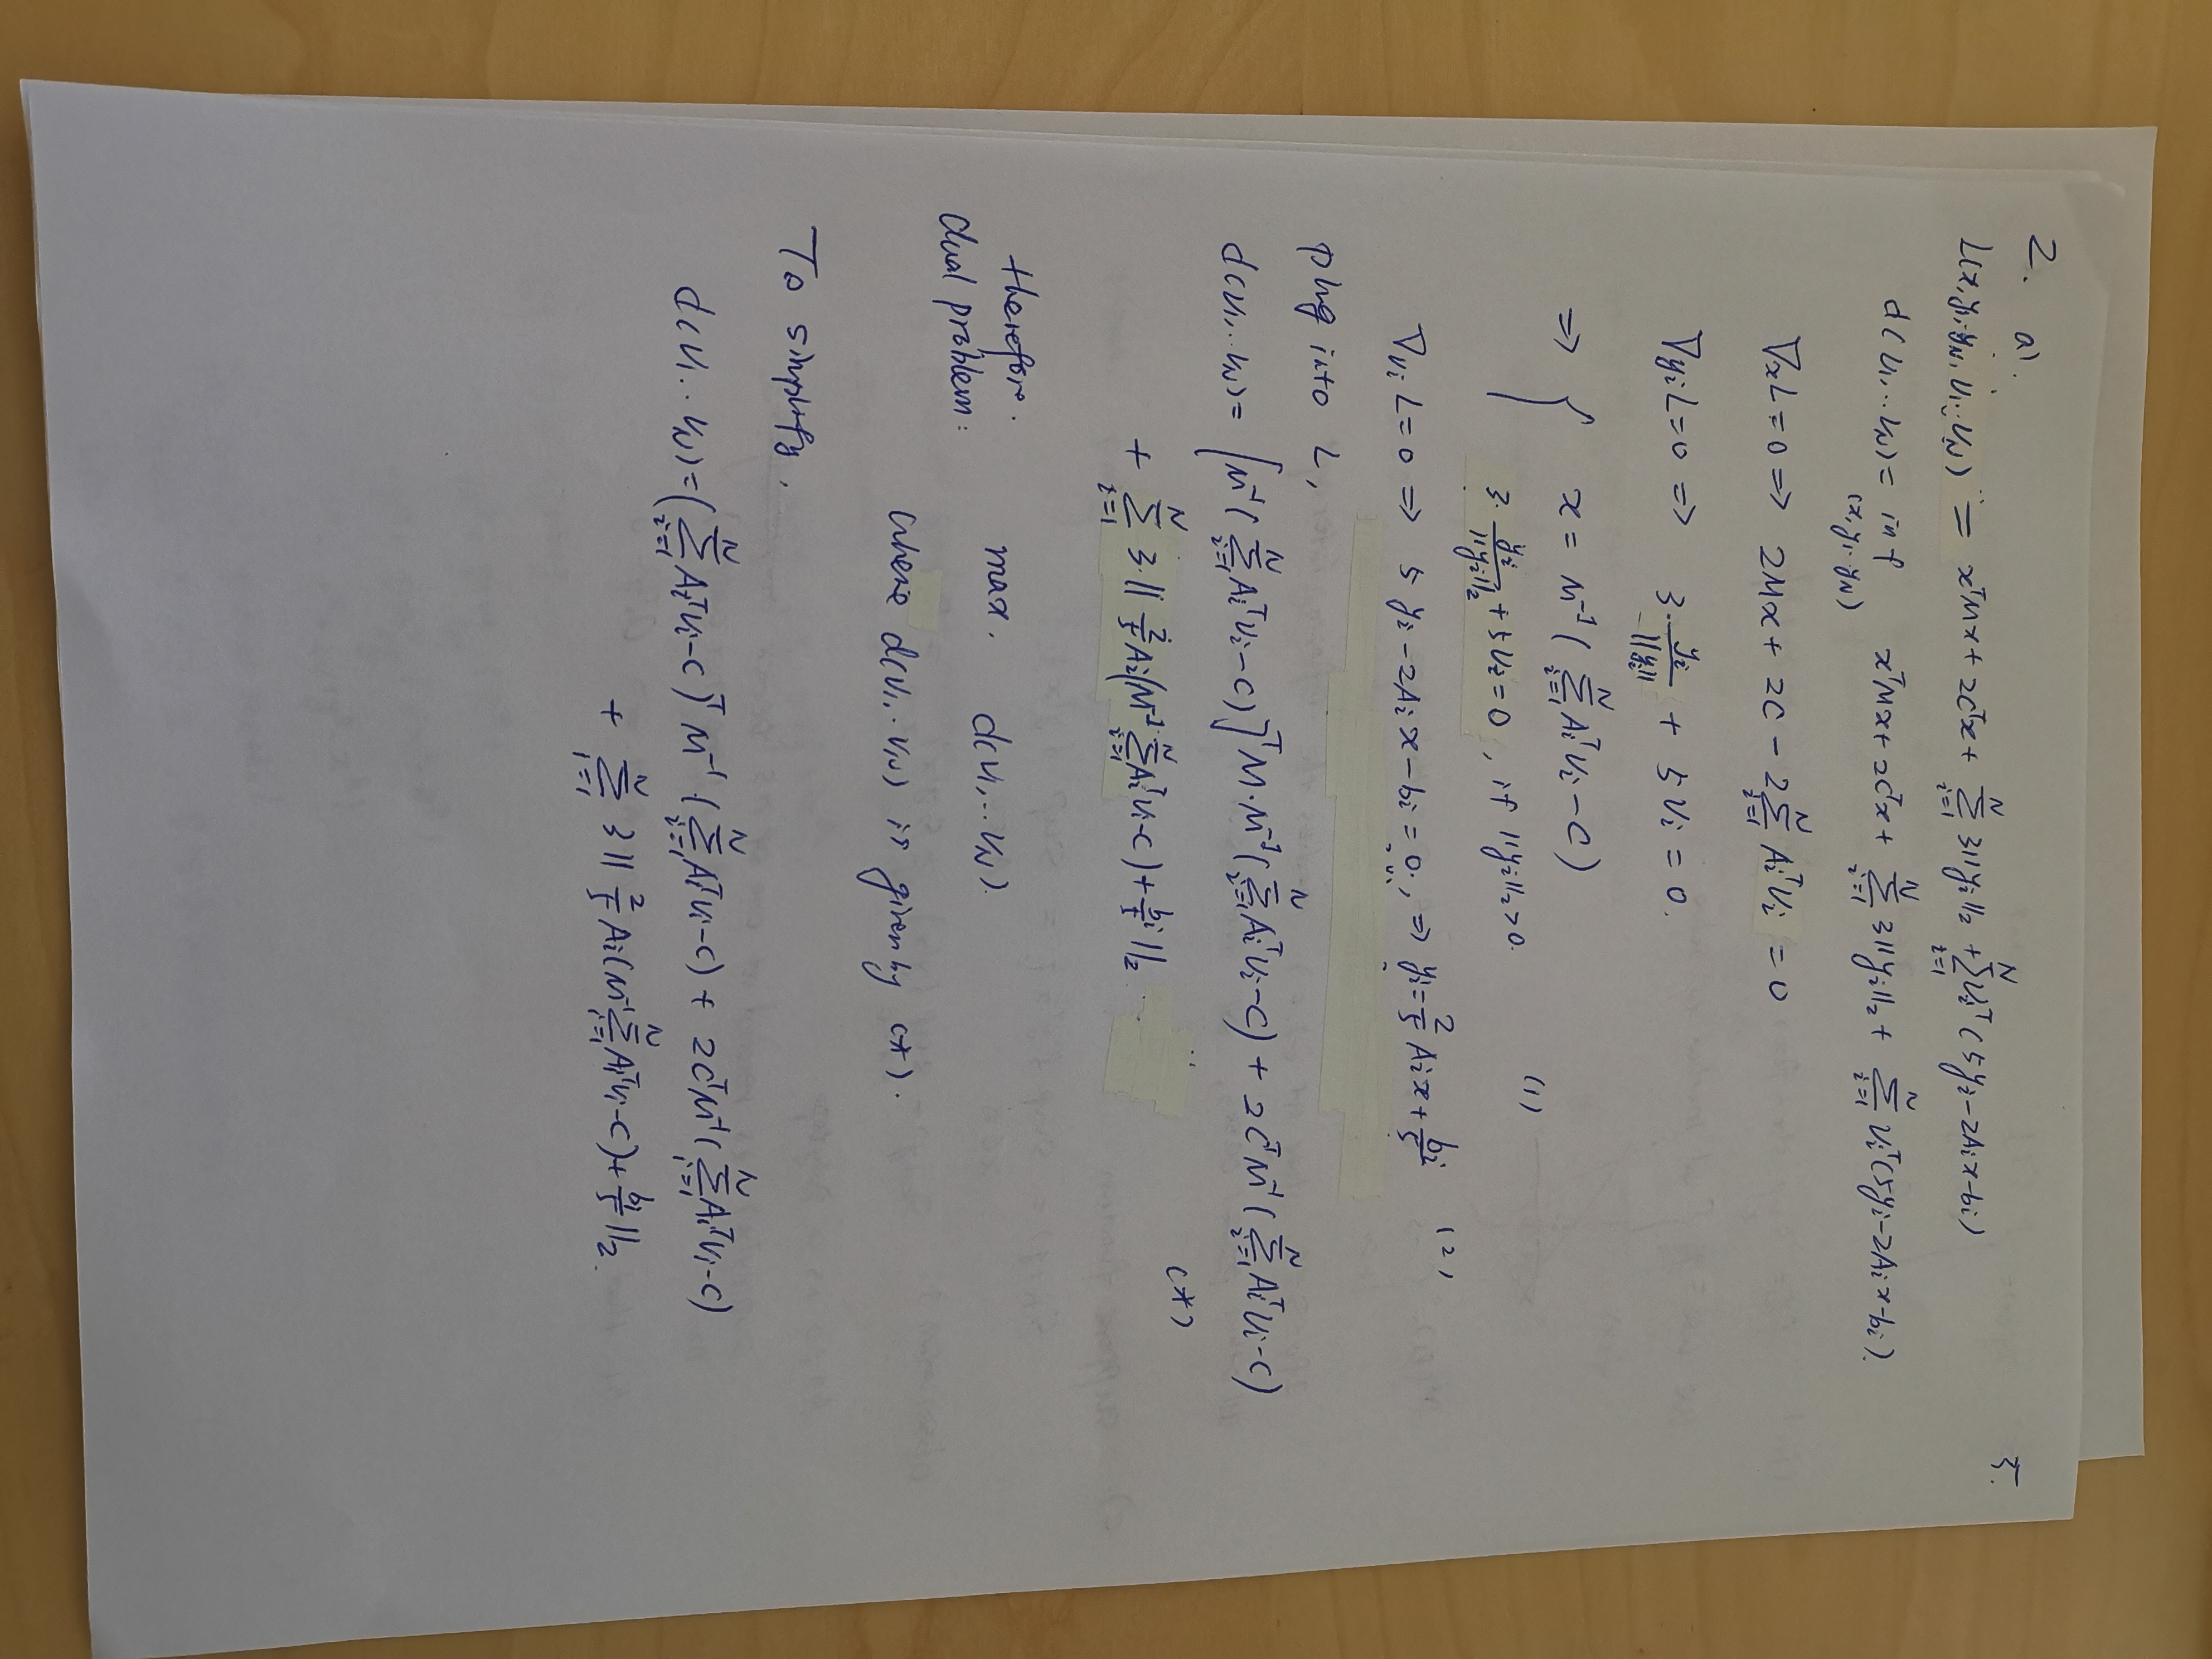 5.
2. a).
L(x,y1..yN, v1..vN) = xᵀMx + 2Cᵀx + ∑_{i=1}^N 3||yi||₂ + ∑_{i=1}^N viᵀ(5yi-2Aix-bi)
d(v1,..vN) = inf_{(x,y1..yN)} xᵀMx + 2Cᵀx + ∑_{i=1}^N 3||yi||₂ + ∑_{i=1}^N viᵀ(5yi-2Aix-bi).
∇xL=0 ⇒ 2Mx + 2C - 2∑_{i=1}^N Aiᵀvi = 0
∇yiL=0 ⇒ 3·yi/||yi|| + 5vi = 0.
⇒ { x = M⁻¹(∑_{i=1}^N Aiᵀvi - C) (1)
3·yi/||yi||₂ + 5vi = 0, if ||yi||₂>0.
∇viL=0 ⇒ 5yi-2Aix-bi=0., ⇒ yi=2/5 Aix + bi/5 (2)
plug into L,
d(v1,..vN) = [M⁻¹(∑_{i=1}^N Aiᵀvi-C)]ᵀM·M⁻¹(∑_{i=1}^N Aiᵀvi-C) + 2CᵀM⁻¹(∑_{i=1}^N Aiᵀvi-C)
+ ∑_{i=1}^N 3||2/5 Ai(M⁻¹∑_{i=1}^N Aiᵀvi-C)+bi/5||₂ (*)
therefore.
dual problem: max. d(v1,..vN).
where d(v1,..vN) is given by (*).
To simplify,
d(v1..vN)=(∑_{i=1}^N Aiᵀvi-C)ᵀM⁻¹(∑_{i=1}^N Aiᵀvi-C) + 2CᵀM⁻¹(∑_{i=1}^N Aiᵀvi-C)
+ ∑_{i=1}^N 3||2/5 Ai(M⁻¹∑_{i=1}^N Aiᵀvi-C)+bi/5||₂.